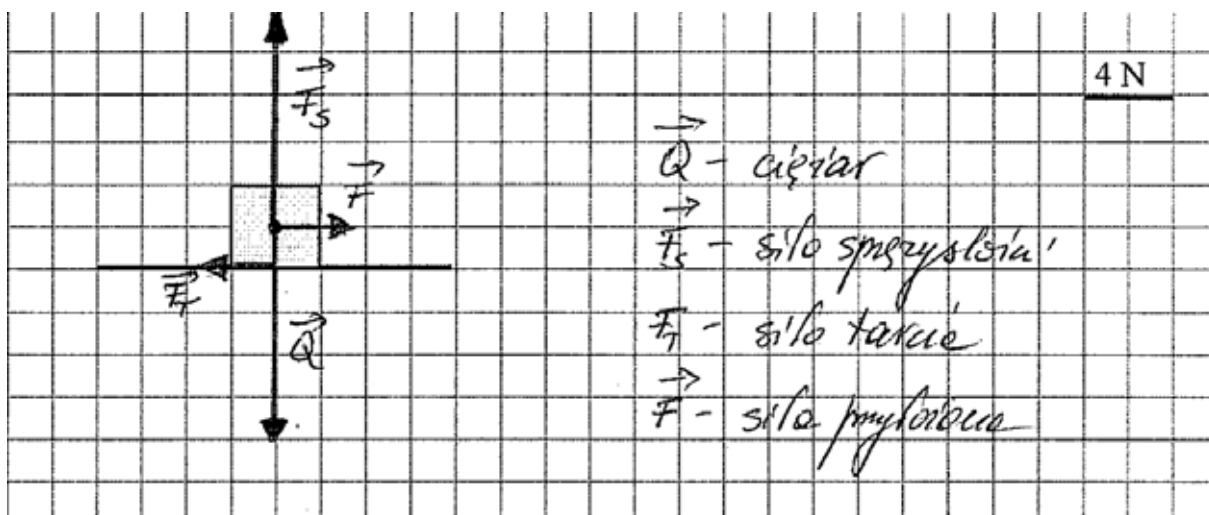 4 N
F_S
F
F_T
Q
Q - ciężar
F_S - siła sprężystości
F_T - siła tarcia
F - siła przyłożona